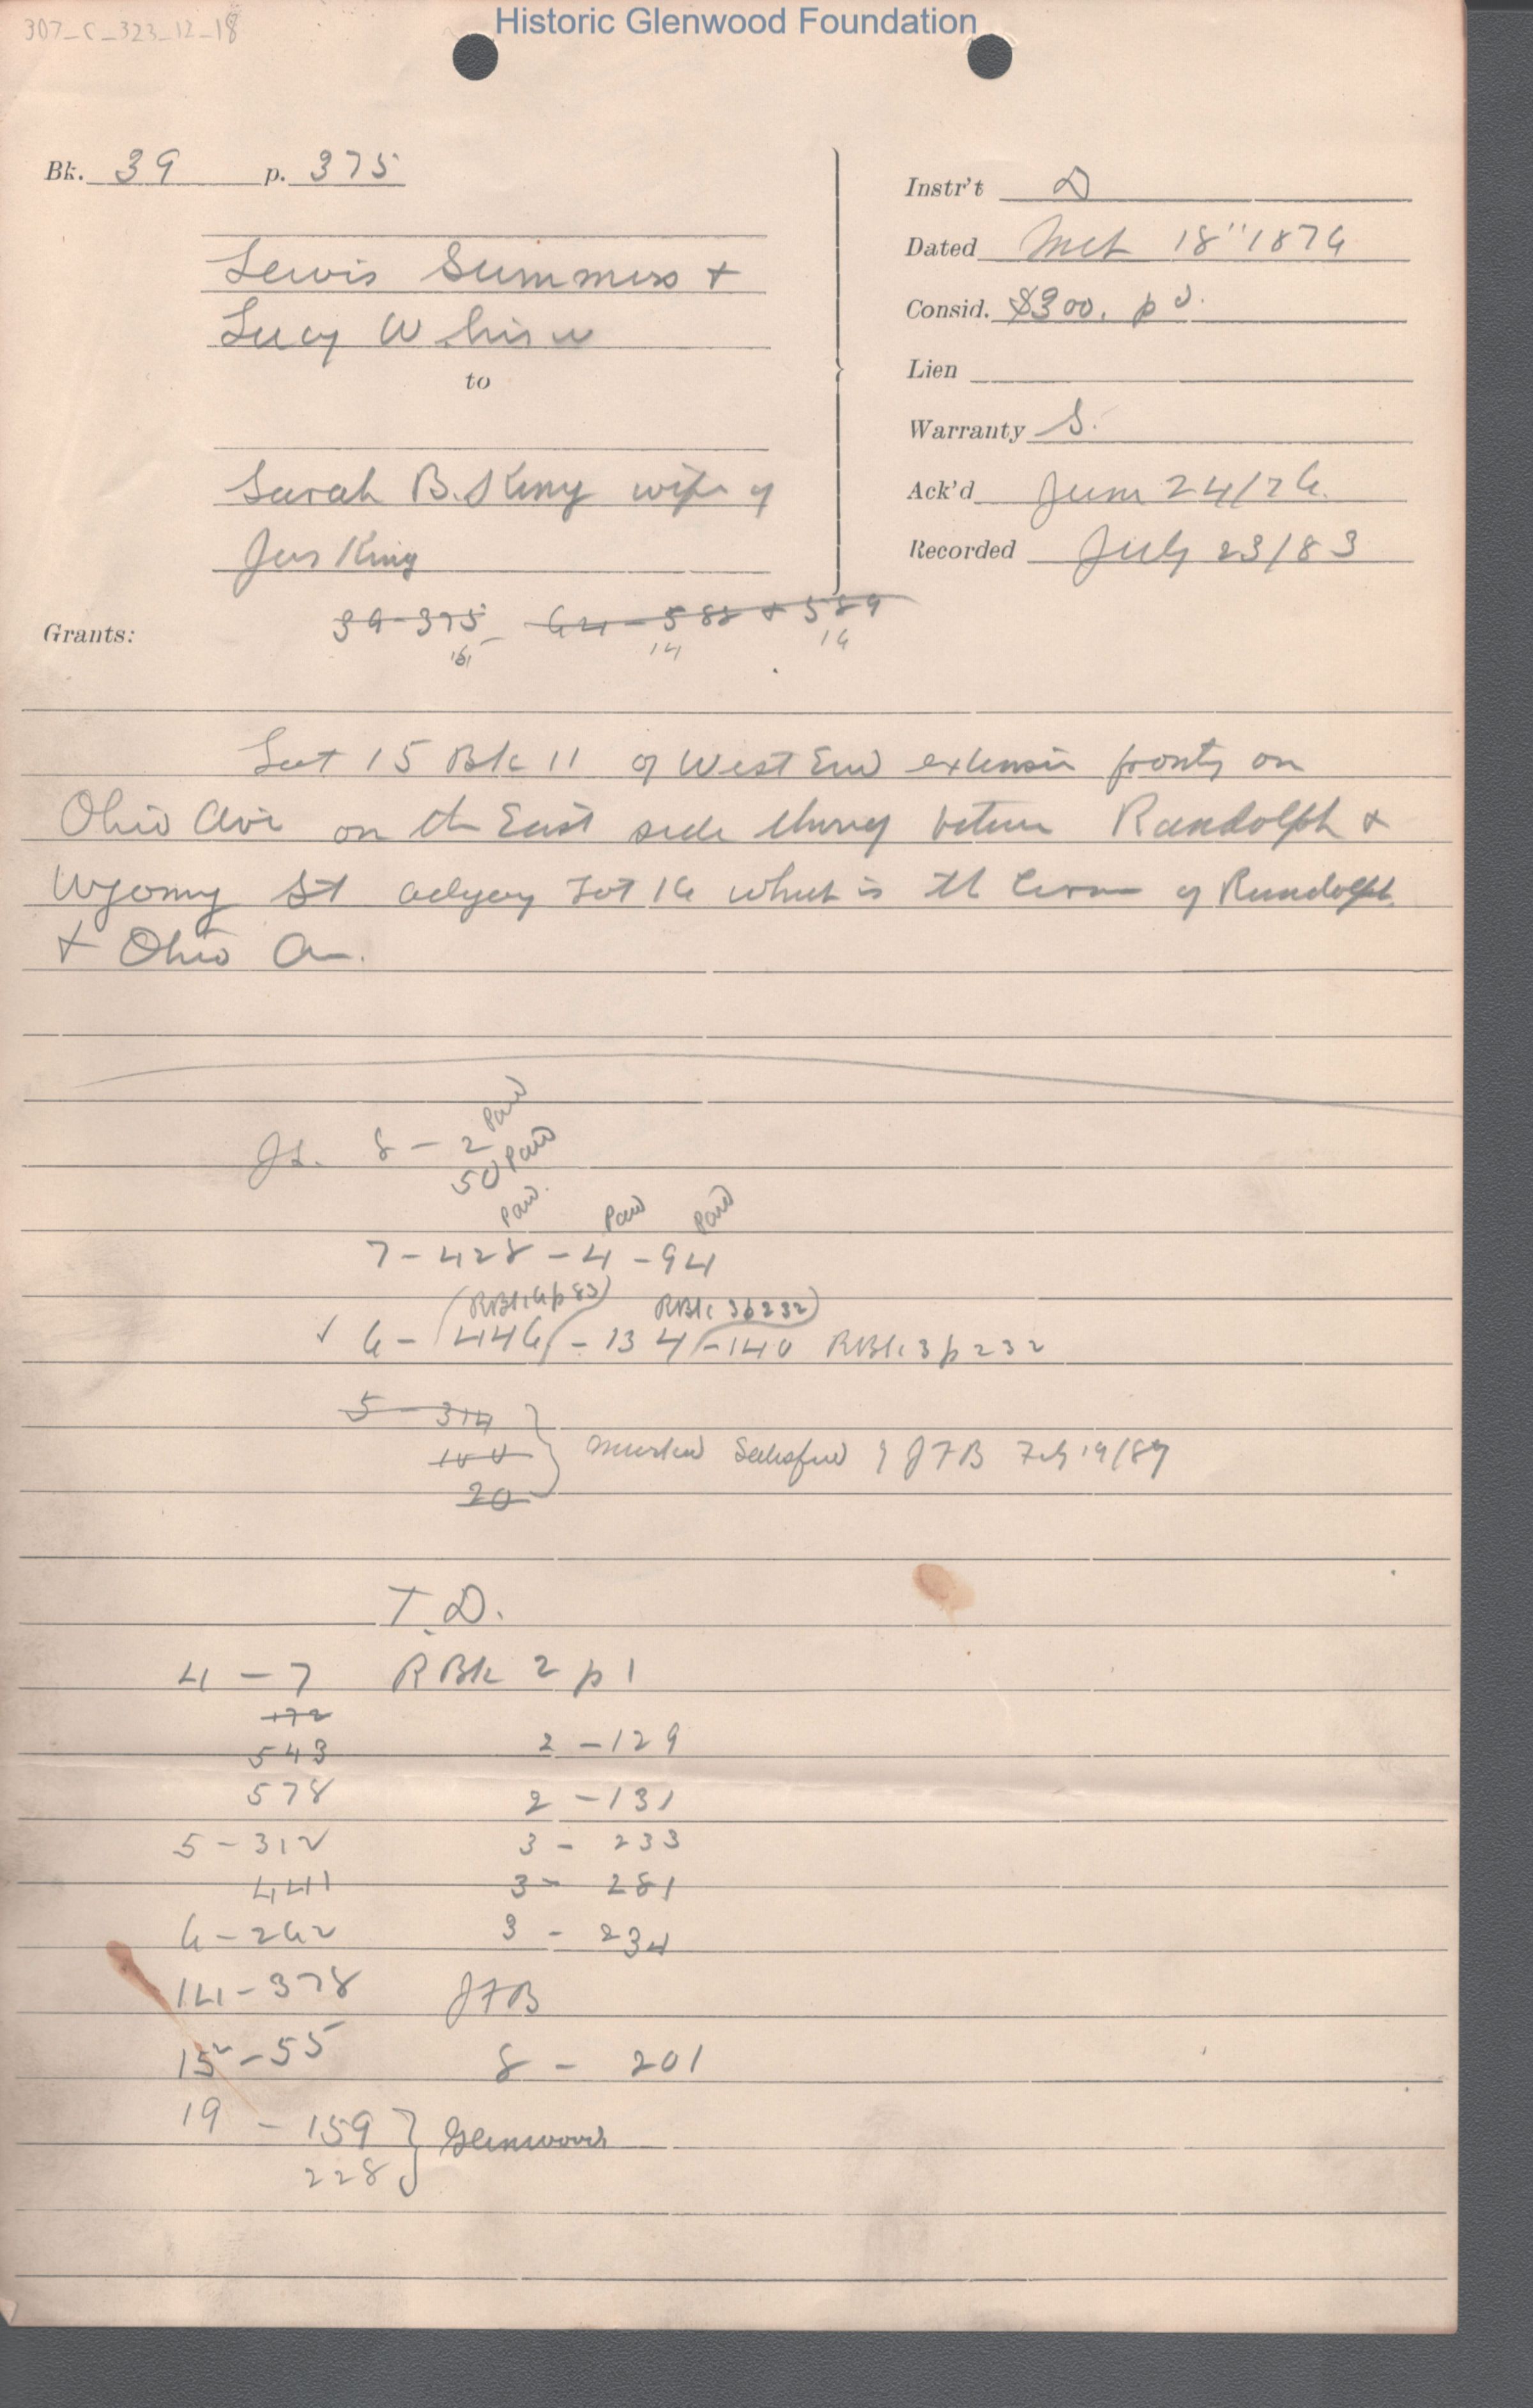 307_C_323_12_18
Historic Glenwood Foundation
Bk. 39 p. 375
Lewis Summers +
Lucy W his w
to
Sarah B. King wife of
Jas King
Instr't D
Dated Mch 18" 1876
Consid. $300. pd.
Lien
Warranty S.
Ack'd June 24/76.
Recorded July 23/83
Grants: 39-375 64-588 + 589
15 14 16
Lot 15 Blk 11 of West End extension fronts on
Ohio Ave on the East side thereof between Randolph &
Wyoming St adjoining Lot 16 which is the corner of Randolph
+ Ohio Av.
Js. 8 - 2 Paid
50 Paid
Paid Paid Paid
7 - 428 - 4 - 94
(RBk 6 p 83) RBk 3 p 232)
✓ 6 - 446 - 134 - 140 RBk 3 p 232
5 - 314
100
20
Marked Satisfied by JFB Feby 19/89
T.D.
4 - 7 RBk 2 p 1
172
543 2 - 129
578 2 - 131
5 - 312 3 - 233
441 3 - 281
6 - 262 3 - 234
14 - 378 JFB
15 - 55 8 - 201
19 - 159 } Glenwood
228